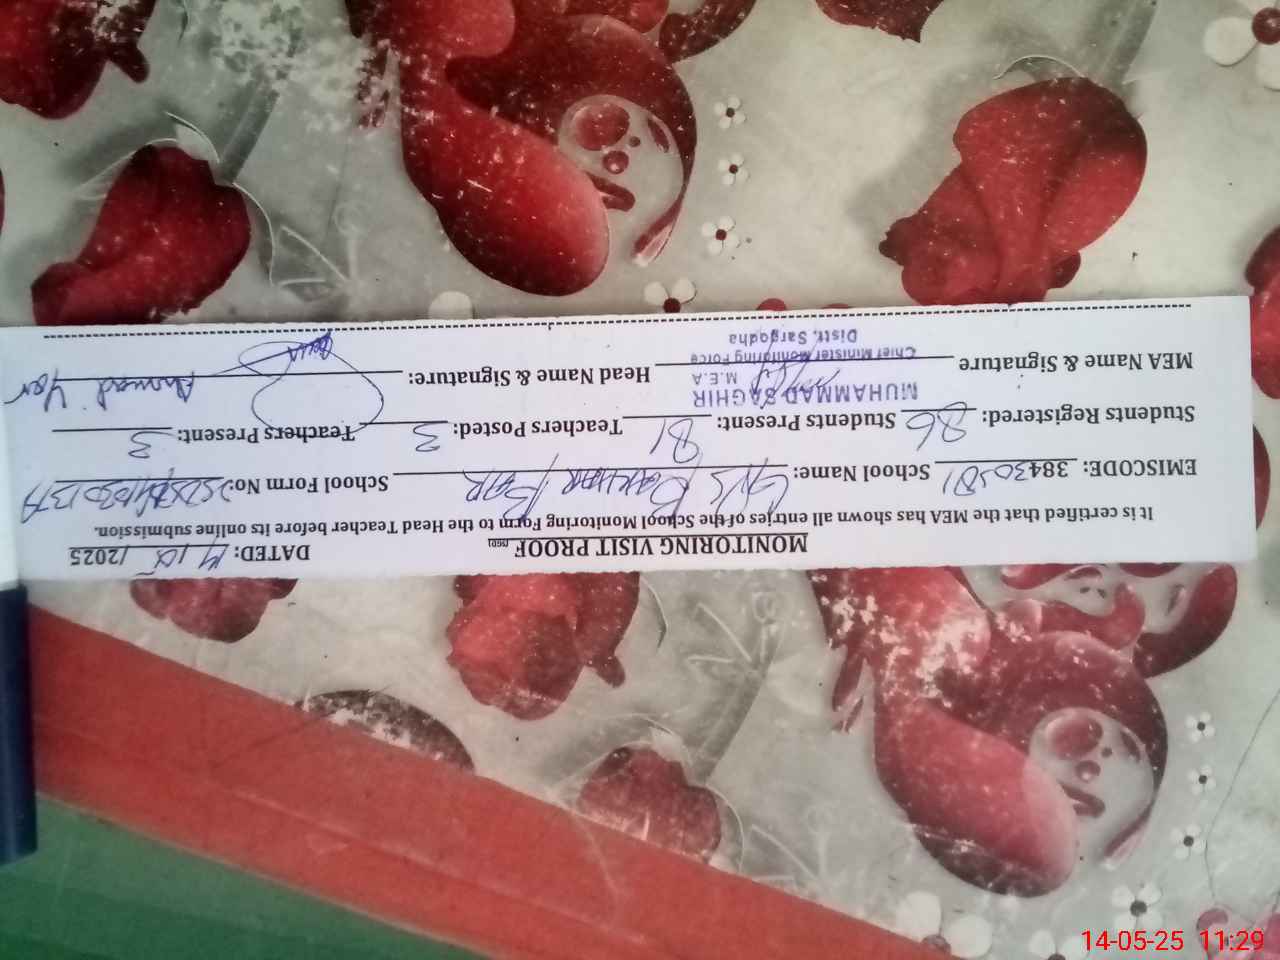 MONITORING VISIT PROOF DATED: 14/5/2025
It is certified that the MEA has shown all entries of the School Monitoring Form to the Head Teacher before its online submission.
EMISCODE: 384305 School Name: School Form No.
Students Registered: 86 Students Present: 81 Teachers Posted: 3 Teachers Present: 3
MUHAMMAD SAGHIR
M.E.A
MEA Name & Signature Head Name & Signature: Ahmad Yar
Chief Minister Monitoring Force
Distt. Sargodha
14-05-25 11:29